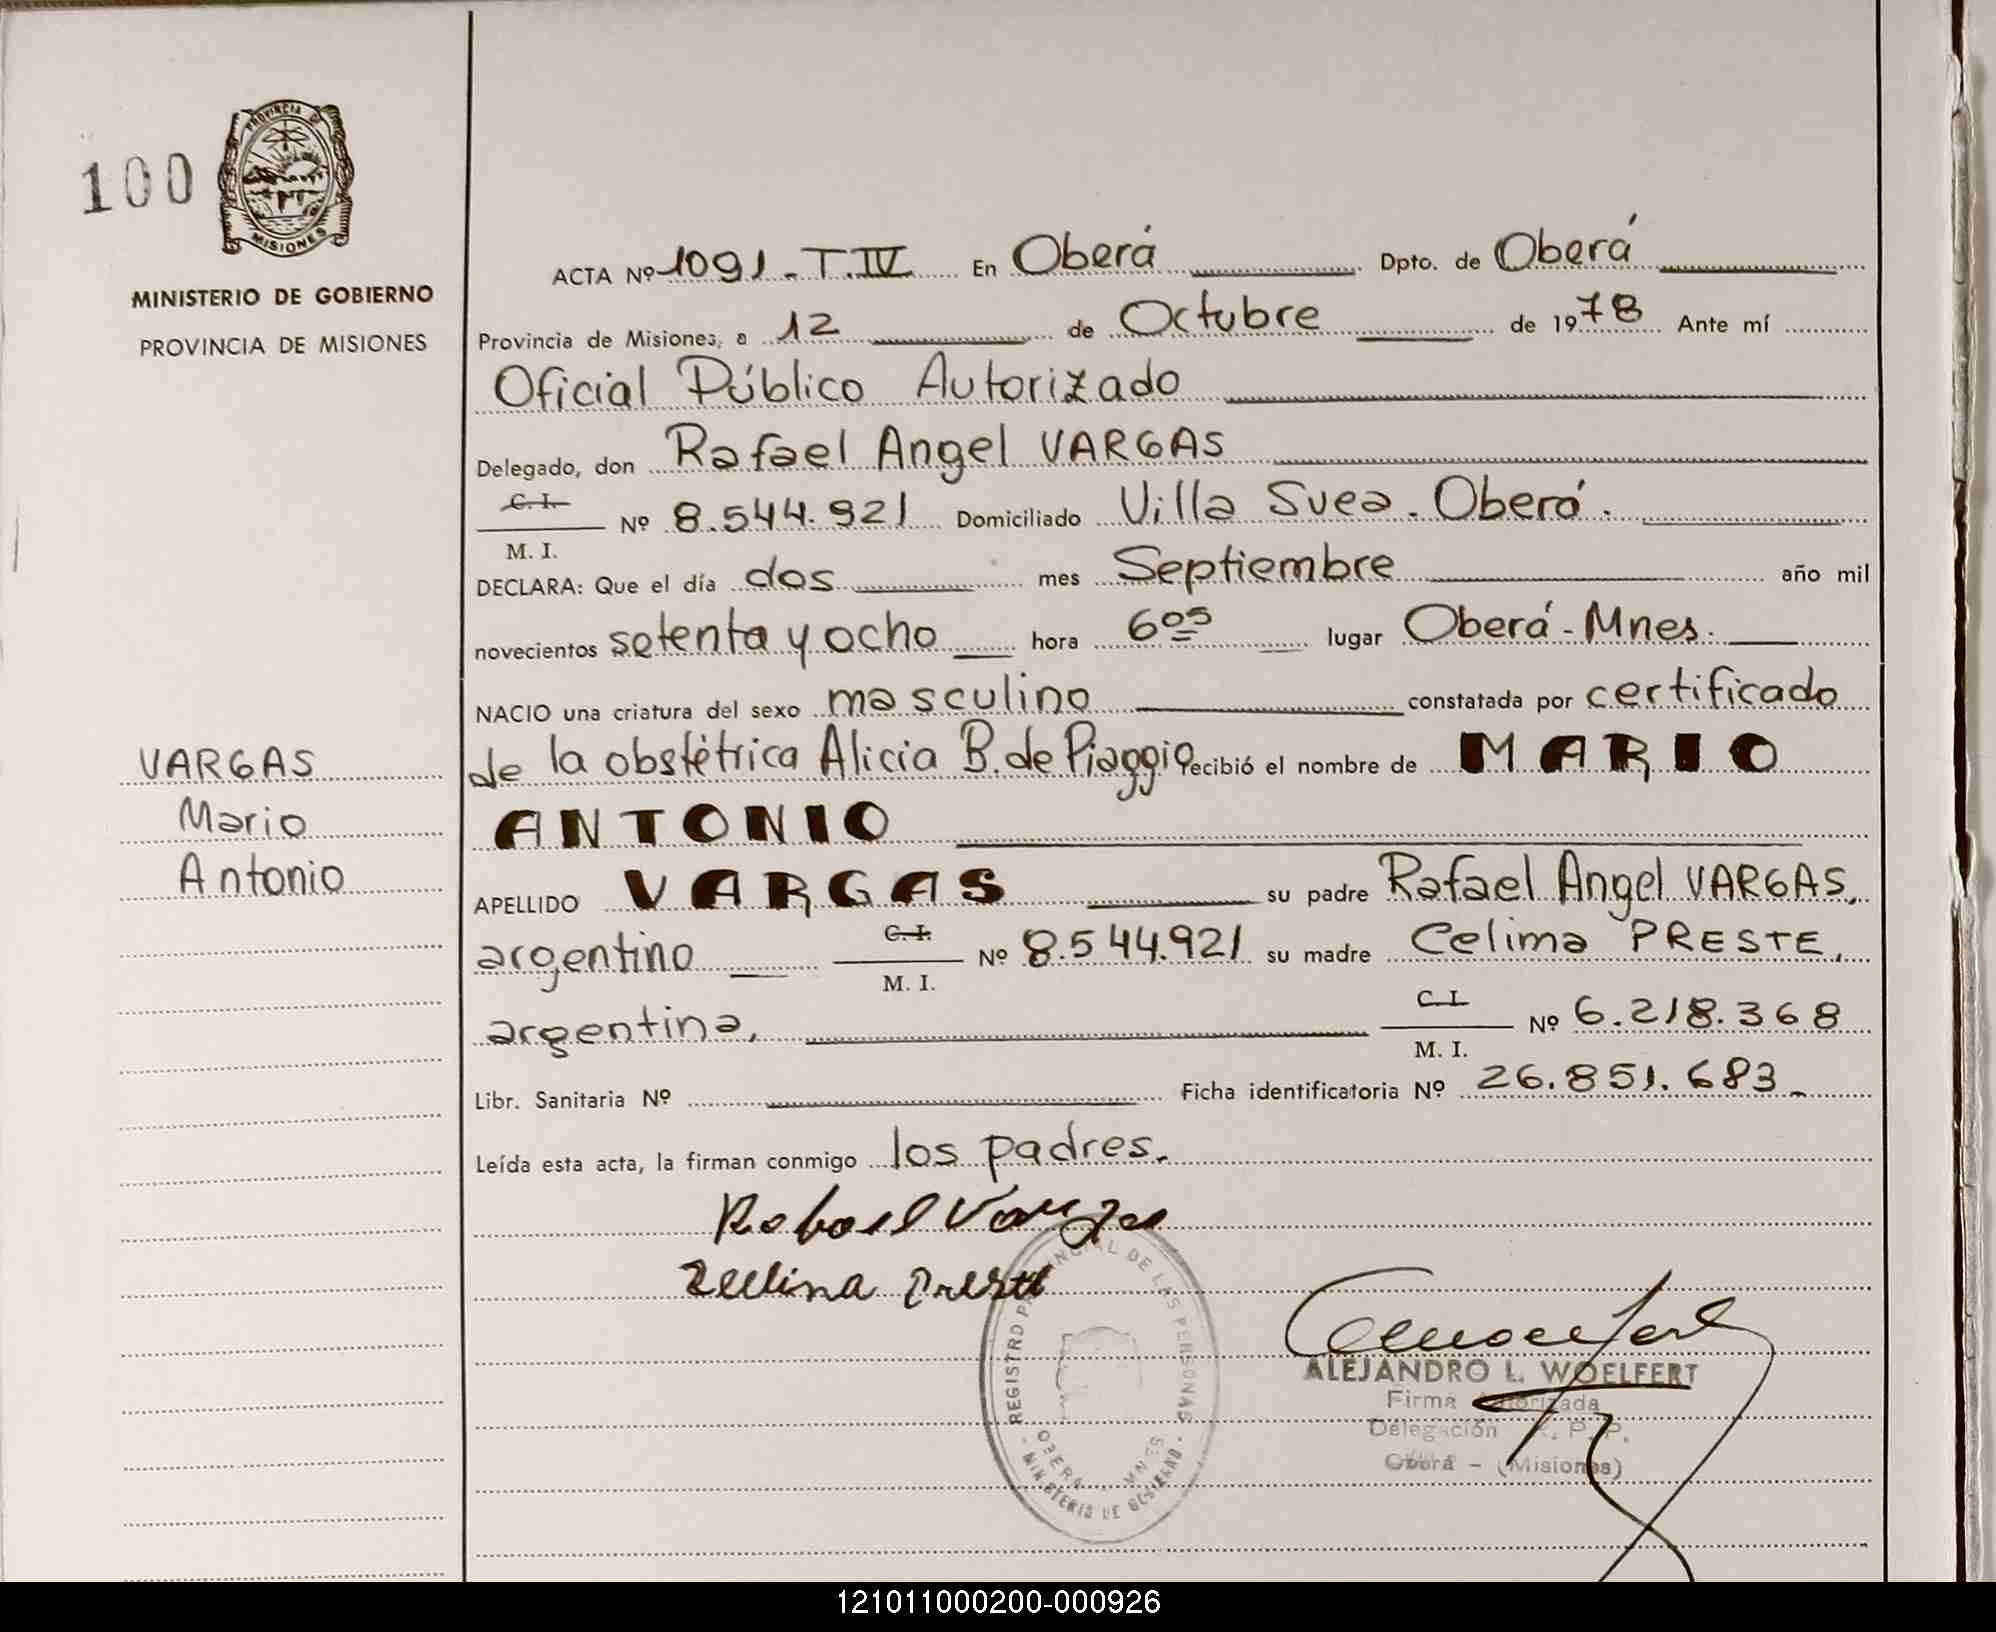 100
PROVINCIA DE
MISIONES
MINISTERIO DE GOBIERNO
PROVINCIA DE MISIONES
VARGAS
Mario
Antonio
ACTA Nº 1091 - T. IV En Oberá Dpto. de Oberá
Provincia de Misiones, a 12 de Octubre de 1978 Ante mí
Oficial Público Autorizado
Delegado, don Rafael Angel VARGAS
C. I.
M. I.
Nº 8.544.921 Domiciliado Villa Svea. Oberá.
DECLARA: Que el día dos mes Septiembre año mil
novecientos setenta y ocho hora 6 05 lugar Oberá - Mnes.
NACIO una criatura del sexo masculino constatada por certificado
de la obstétrica Alicia B. de Piaggio recibió el nombre de MARIO
ANTONIO
APELLIDO VARGAS su padre Rafael Angel VARGAS,
argentino C. I. Nº 8.544.921 su madre Celima PRESTE,
M. I.
argentina, C. I. Nº 6.218.368
M. I.
Libr. Sanitaria Nº Ficha identificatoria Nº 26.851.683
Leída esta acta, la firman conmigo los padres.
Rafael Vargas
Preste
REGISTRO PROVINCIAL DE LAS PERSONAS
OBERA - MNES
MINISTERIO DE GOBIERNO
ALEJANDRO L. WOELFERT
Firma Autorizada
Delegación R. P. P.
Oberá - (Misiones)
121011000200-000926